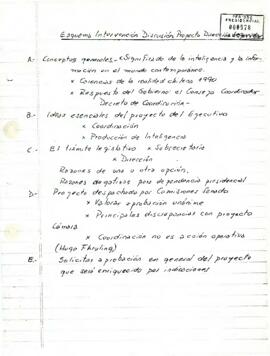 PRESIDENTIAL
000578
Esquema Intervención Discusión Proyecto Dirección de
A.- Conceptos generales.- x Significado de la inteligencia y la infor-
mación en el mundo contemporáneo.
x Carencias de la realidad chilena 1990
x Respuesta del Gobierno el Consejo Coordinador
Decreto de Coordinación.-
B.- Ideas esenciales del proyecto del Ejecutivo
x Coordinación
x Producción de Inteligencia
C. El trámite legislativo x Subsecretaría
x Dirección
Razones de una u otra opción.
Razones negativas por dependencia presidencial
D.- Proyecto despachado por Comisiones Senado
x Valorar aprobación unánime
x Principales discrepancias con proyecto
Cámara
x Coordinación no es acción operativa
(Hugo Frühling)
E.- Solicitar aprobación en general del proyecto
que será enriquecido por indicaciones